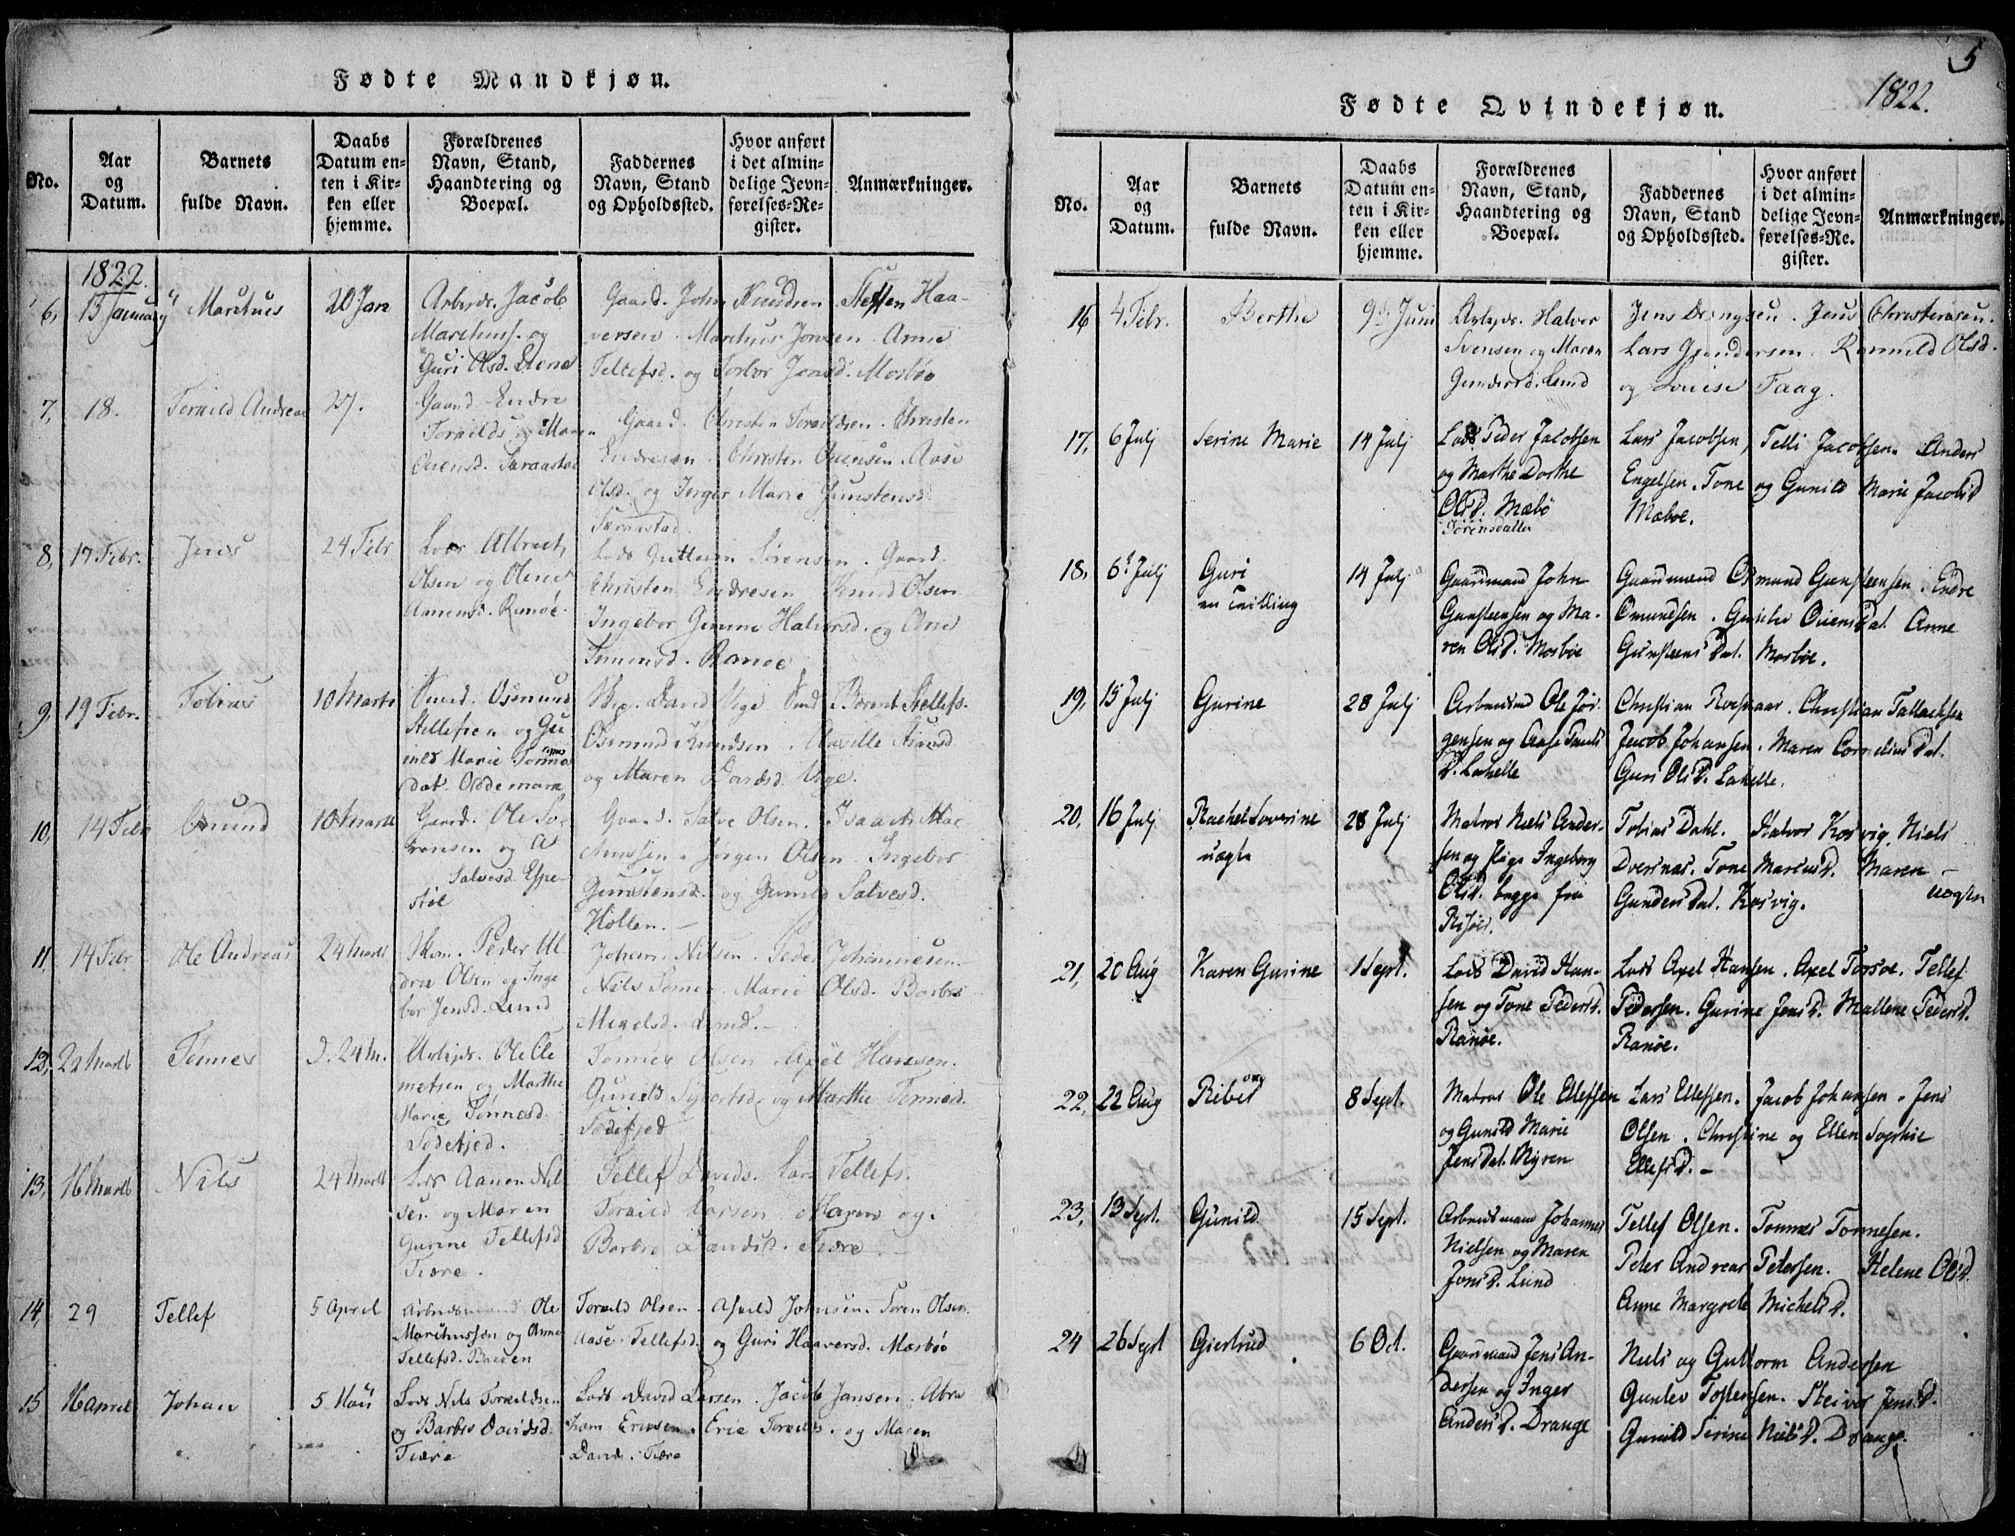 Fødte Mandkjøn.
No.
Aar
og
Datum.
Barnets
fulde Navn.
Daabs
Datum en-
ten i Kir-
ken eller
hjemme.
Forældrenes
Navn, Stand,
Haandtering og
Boepæl.
Faddernes
Navn, Stand
og Opholdssted.
Hvor anført
i det almin-
delige Jevn-
førelses-Re-
gister.
Anmærkninger.
1822.
6, 13 January Marthus 20 Jan
Arbejds. Jacob
Marthuss. og
Guri Olsd.
Gaard. John Knudsen. Steffen Haa-
versen. Marthus Jonsen. Anne
Tellefsd. og Jonsd. Mosbøe
7, 18. Torkild Andreas 27.
Gaard Endre
Torkilds og Maren
Ouensd.
Gaard. Christen Torkildsen. Christen
Endresen. Christen Ouensen. Aase
Olsd. og Inger Marie Gunstensd.
8, 17 Febr. Jens 24 Febr
Lods Albrect
Olsen og Olene
Aanensd. Ranøe.
Lods Guttorm Sørensen. Gaard.
Christen Endresen. Knud Olsen
Ingebor Gurine Halvorsd. og Ane
Simensd. Ranøe
9, 19 Febr. Tobias 10 Marts
Osmund
Stellefsen og Gu-
nild Marie Tønnes
dat. Oddernæs
David Vige. Berent Stellefs.
Osmund Knudsen.
og Maren Davidsd. Vige.
10, 14 Febr Omund 10 Marts
Gaard. Ole So-
rensen og
Salvesd.
Gaard. Salve Olsen. Isaach
Jørgen Olsen. Ingebor
Gunstensd. og Gunild Salvesd.
Hollen.
11, 14 Febr Ole Andreas 24 Marts
Peder Ul-
Olsen og Inge
bor Jensd. Lund
Johan Nilsen. Peder Johannesen.
Nils Marie Olsd. Barbro
Mikelsd. Lund.
12, 22 Marts Tønnes D. 24 M.
Arbejds. Ole Cle
metsen og Marthe
Marie Tønnesd.
Sødefjed.
Tønnes Olsen. Axel Hansen.
Gunild Sybertsd. og Marthe Tønnesd.
Sødefjed
13, 16 Marts Nils 24 Marts
Lods Aanen Nil
sen og Maren
Gurine Tellefsd
Fiære.
Tellef Davids. Lars Tellefs.
Torkild Larsen. Maren og
Barbro Davidsd. Fiære
14, 29 Tellef 5 April
Arbeidsmand Ole
Marthussen og Anne
Tellefsd. Baaden
Torkild Olsen. Johnsen. Søren Olsen
Aase Tellefsd. og Guri Haaversd. Mosbøe
15 16 April Johan 5 Maii
Lods Nils Torkildsen
og Barbro Davidsd.
Fiære
Lods David Larsen. Jacob Jansen. Abra
ham Ericsen. Eric Torkilds. og Maren
Davids. Fiære
5
1822.
Fødte Qvindekjøn.
No.
Aar
og
Datum.
Barnets
fulde Navn.
Daabs
Datum en-
ten i Kir-
ken eller
hjemme.
Forældrenes
Navn, Stand,
Haandtering og
Boepæl.
Faddernes
Navn, Stand
og Opholdssted.
Hvor anført
i det almin-
delige Jevn-
førelses-Re-
gister.
Anmærkninger.
16 4 Febr. Berthe 9de Juni
Arbejds. Halvor
Svensen og Maren
Gundersd. Lund
Jens Jens Christensen.
Lars Gundersen. Rannild Olsd.
og Lovise Faag.
17, 6 Julj Serine Marie 14 Julj
Lods Peder Jacobsen
og Marthe Dorthe
Olsd. Mæbø
Sørensdatter
Lars Jacobsen, Telli Jacobsen. Anders
Engelsen. Tone og Gunild Marie Jacobsd
Mæboe.
18, 6t Julj Guri
en Tvilling
14 Julj
Gaardmand John
Gunsteensen og Ma-
ren Olsd. Mosbøe
Gaardmand Omund Gunsteensen. Endre
Omundsen. Gunild Ouensdat. Anne
Gunsteensdat. Mosbøe.
19, 15 Julj Gurine 28 Julj
Arbeidsmd Ole Jør-
gensen og Aase Pauls
D. Lahelle
Christian Roesgaar. Christian Tallacksen
Jacob Johansen. Maren Corneliusdat.
Guri Olsd. Lahelle.
20, 16 Julj Rachel Soverine
uægte
28 Julj
Matros Niels Ander-
sen og Pige Ingeborg
Olsd. begge fra
Risøer.
Tobias Dahl. Halvor Kosvig. Niels
Dversnæs. Tone Mortensd. Maren
Gundersdat. Kosvig.
uægte
21, 20 Aug Karen Gurine 1 Sept.
Lods David Han-
sen og Tone Pedersd.
Ranøe.
Lods Axel Hansen. Axel Torsoe. Tellef
Pedersen. Gurine Jensd. Mallene Pedersd.
Ranøe.
22, 22 Aug 8 Sept.
Matros Ole Ellefsen
og Gunild Marie
Jensdat. Myren
Lars Ellefsen. Jacob Johansen. Jens
Olsen. Christine og Ellen Sophie
Ellefsd. —
23, 13 Sept. Gunild 15 Sept.
Arbeidsmand Johannes
Nielsen og Maren
Jonsd. Lund
Tellef Olsen. Tønnes Tønnesen.
Peter Andreas Petersen. Helene Olsd.
Anne Margrete Michelsd.
24 26 Sept Giertrud 6 Oct.
Gaardmand Jens An-
dersen og Inger
Andersd. Drange
Niels og Guttorm Andersen
Gunlev Tostensen. Steiver Jensd.
Gunild Serine Nielsd. Drange.